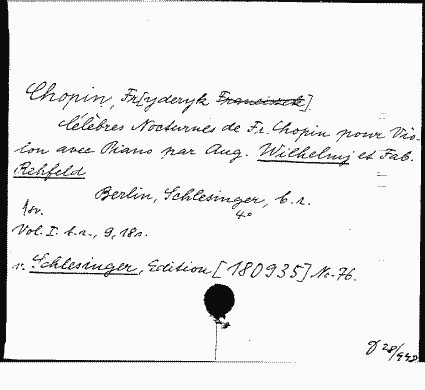 Chopin, Fr[yderyk Franciszek].
Célèbres Nocturnes de Fr. Chopin pour Vio-
lon avec Piano par Aug. Wilhelmj et Fab.
Rehfeld
Berlin, Schlesinger, b.r.
4o
Vol. I. b.r., 9, 18s.
v. Schlesinger, Edition [180935] No. 76.
28/448